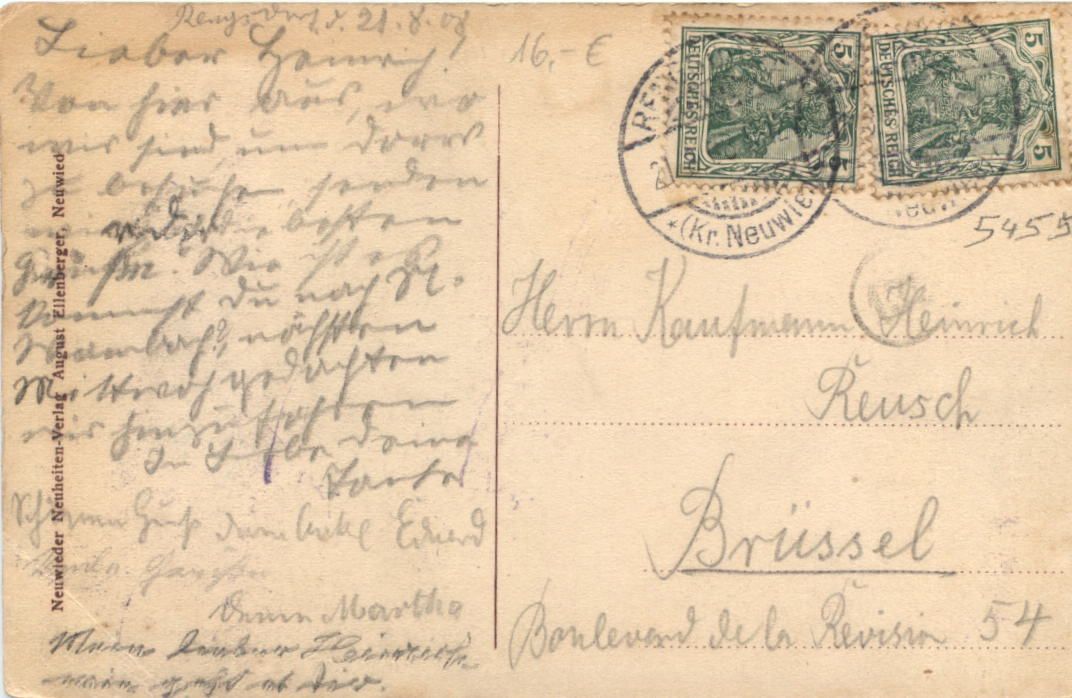 Rengsdorf, d. 21.8.08
Lieber Heinrich!
Von hier aus, wo
wir sind, um Doras
zu besuchen senden
wir die besten
Grüße. Wie ist es
kommst Du nach
nächsten
Mittwoch gedachten
wir hinzufahren
In Liebe deine
Tante
Schönen Gruß dein Onkel Eduard
Deine Martha
Mein lieber Heinrich
wie geht es dir.
Neuwieder Neuheiten-Verlag August Ellenberger, Neuwied
16,- €
5 DEUTSCHES REICH 5
5 DEUTSCHES REICH 5
(Kr. Neuwied
5455
Herrn Kaufmann Heinrich
Reusch
Brüssel
Boulevard de la Révision 54